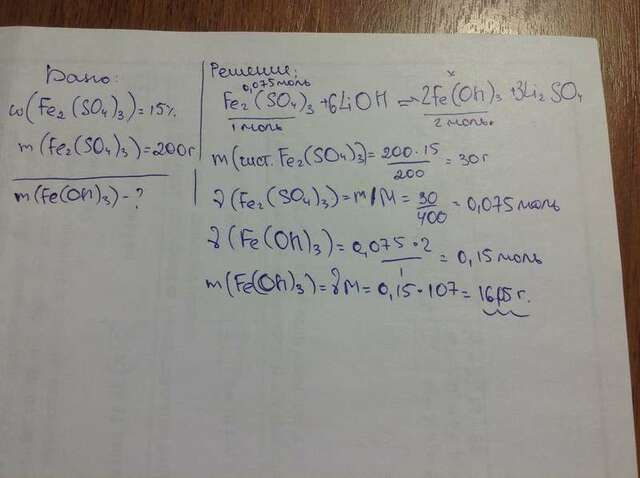 Дано:
ω(Fe₂(SO₄)₃)=15%
m(Fe₂(SO₄)₃)=200г
m(Fe(OH)₃)-?
Решение:
0,075моль x
Fe₂(SO₄)₃+6LiOH=>2Fe(OH)₃+3Li₂SO₄
1моль 2моль.
m(чист. Fe₂(SO₄)₃)=200·15/200=30г
ν(Fe₂(SO₄)₃)=m/M=30/400=0,075моль
ν(Fe(OH)₃)=0,075·2/1=0,15моль
m(Fe(OH)₃)=νM=0,15·107=16,05г.